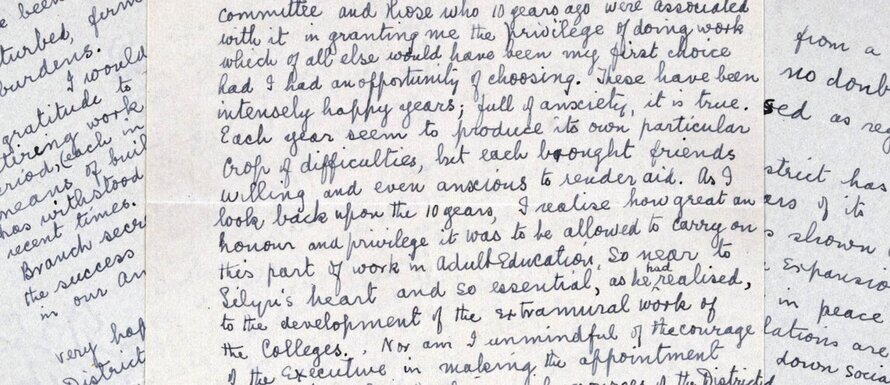 committee and those who 10 years ago were associated
with it in granting me the privilege of doing work
which of all else would have been my first choice
had I had an opportunity of choosing. These have been
intensely happy years; full of anxciety, it is true.
Each year seem to produce its own particular
Crop of difficulties, but each brought friends
willing and even anxcious to render aid. As I
look back upon the 10 years, I realise how great an
honour and privilege it was to be allowed to carry on
this part of work in Adult Education, So near to
Silyn's heart and so essential, as he had realised,
to the development of the extramural work of
the Colleges. Nor am I unmindful of the courage
of the Executive in making the appointment
of the District
been
turbed, firm
burdens.
I would
gratitude to
tiring work
period, (each in
means of buil
has withstood
recent times.
Branch secre
the success
in our An
very hap
District
from a
no doub
sed as reg
strict has
ars of its
s shown
Expansio
in peace
lations are
down socia